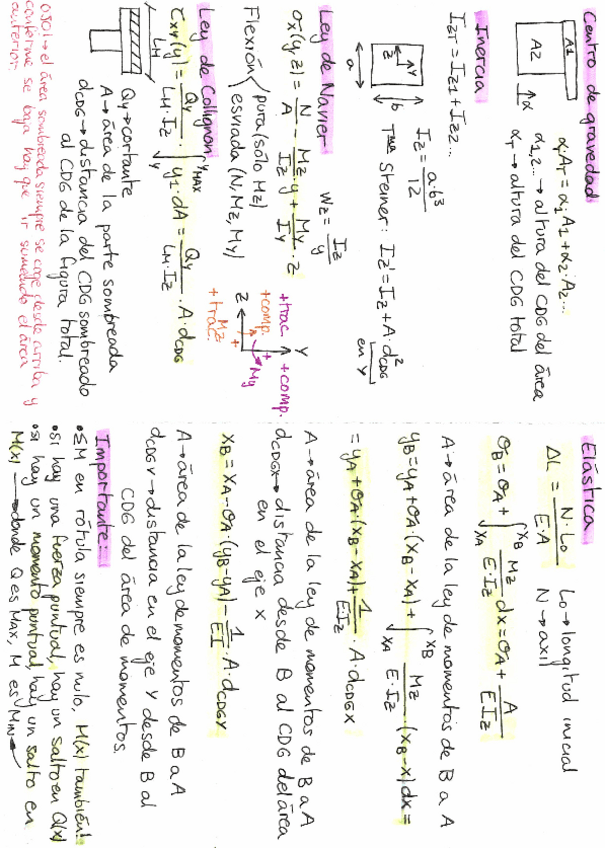 Centro de gravedad
A1
A2
α
αTAT = α1A1+α2·A2...
α1,2... → altura del CDG del área
αT → altura del CDG total
Inercia
IzT = Iz1 + Iz2...
Y
Z
b
a
Iz = a·b³/12
Tma Steiner: Iz' = Iz + A·d²CDG
en Y
Ley de Navier
Wz = Iz/y
σx(y,z) = N/A - Mz/Iz·y + My/Iy·z
Flexión
pura (sólo Mz)
esviada (N, Mz, My)
Y
+trac
+comp.
+comp.
Z
My
Mz
+trac.
Ley de Collignon
τxy(y) = Qy/LM·Iz · ∫y^yMAX y1·dA = Qy/LM·Iz · A·dCDG
LM
Qy → cortante
A → área de la parte sombreada
dCDG → distancia del CDG sombreado
al CDG de la figura total.
OJO! → el área sombreada siempre se coge desde arriba y
conforme se baja hay que ir sumando el área
anterior.
Elástica
ΔL = N·Lo/E·A
Lo → longitud inicial
N → axil
θB = θA + ∫xA^xB Mz/E·Iz dx = θA + A/E Iz
A → área de la ley de momentos de B a A
yB = yA + θA·(xB-xA) + ∫xA^xB Mz/E·Iz (xB-x)dx =
= yA + θA·(xB-xA) + 1/E·Iz · A·dCDGX
A → área de la ley de momentos de B a A
dCDGX → distancia desde B al CDG del área
en el eje X
xB = xA - θA·(yB-yA) - 1/EI · A·dCDGY
A → área de la ley de momentos de B a A
dCDGY → distancia en el eje Y desde B al
CDG del área de momentos.
Importante:
• ΣM en rótula siempre es nulo, M(x) también!
• si hay una fuerza puntual, hay un salto en Q(x)
• si hay un momento puntual, hay un salto en
M(x) → donde Q es MAX, M es MIN